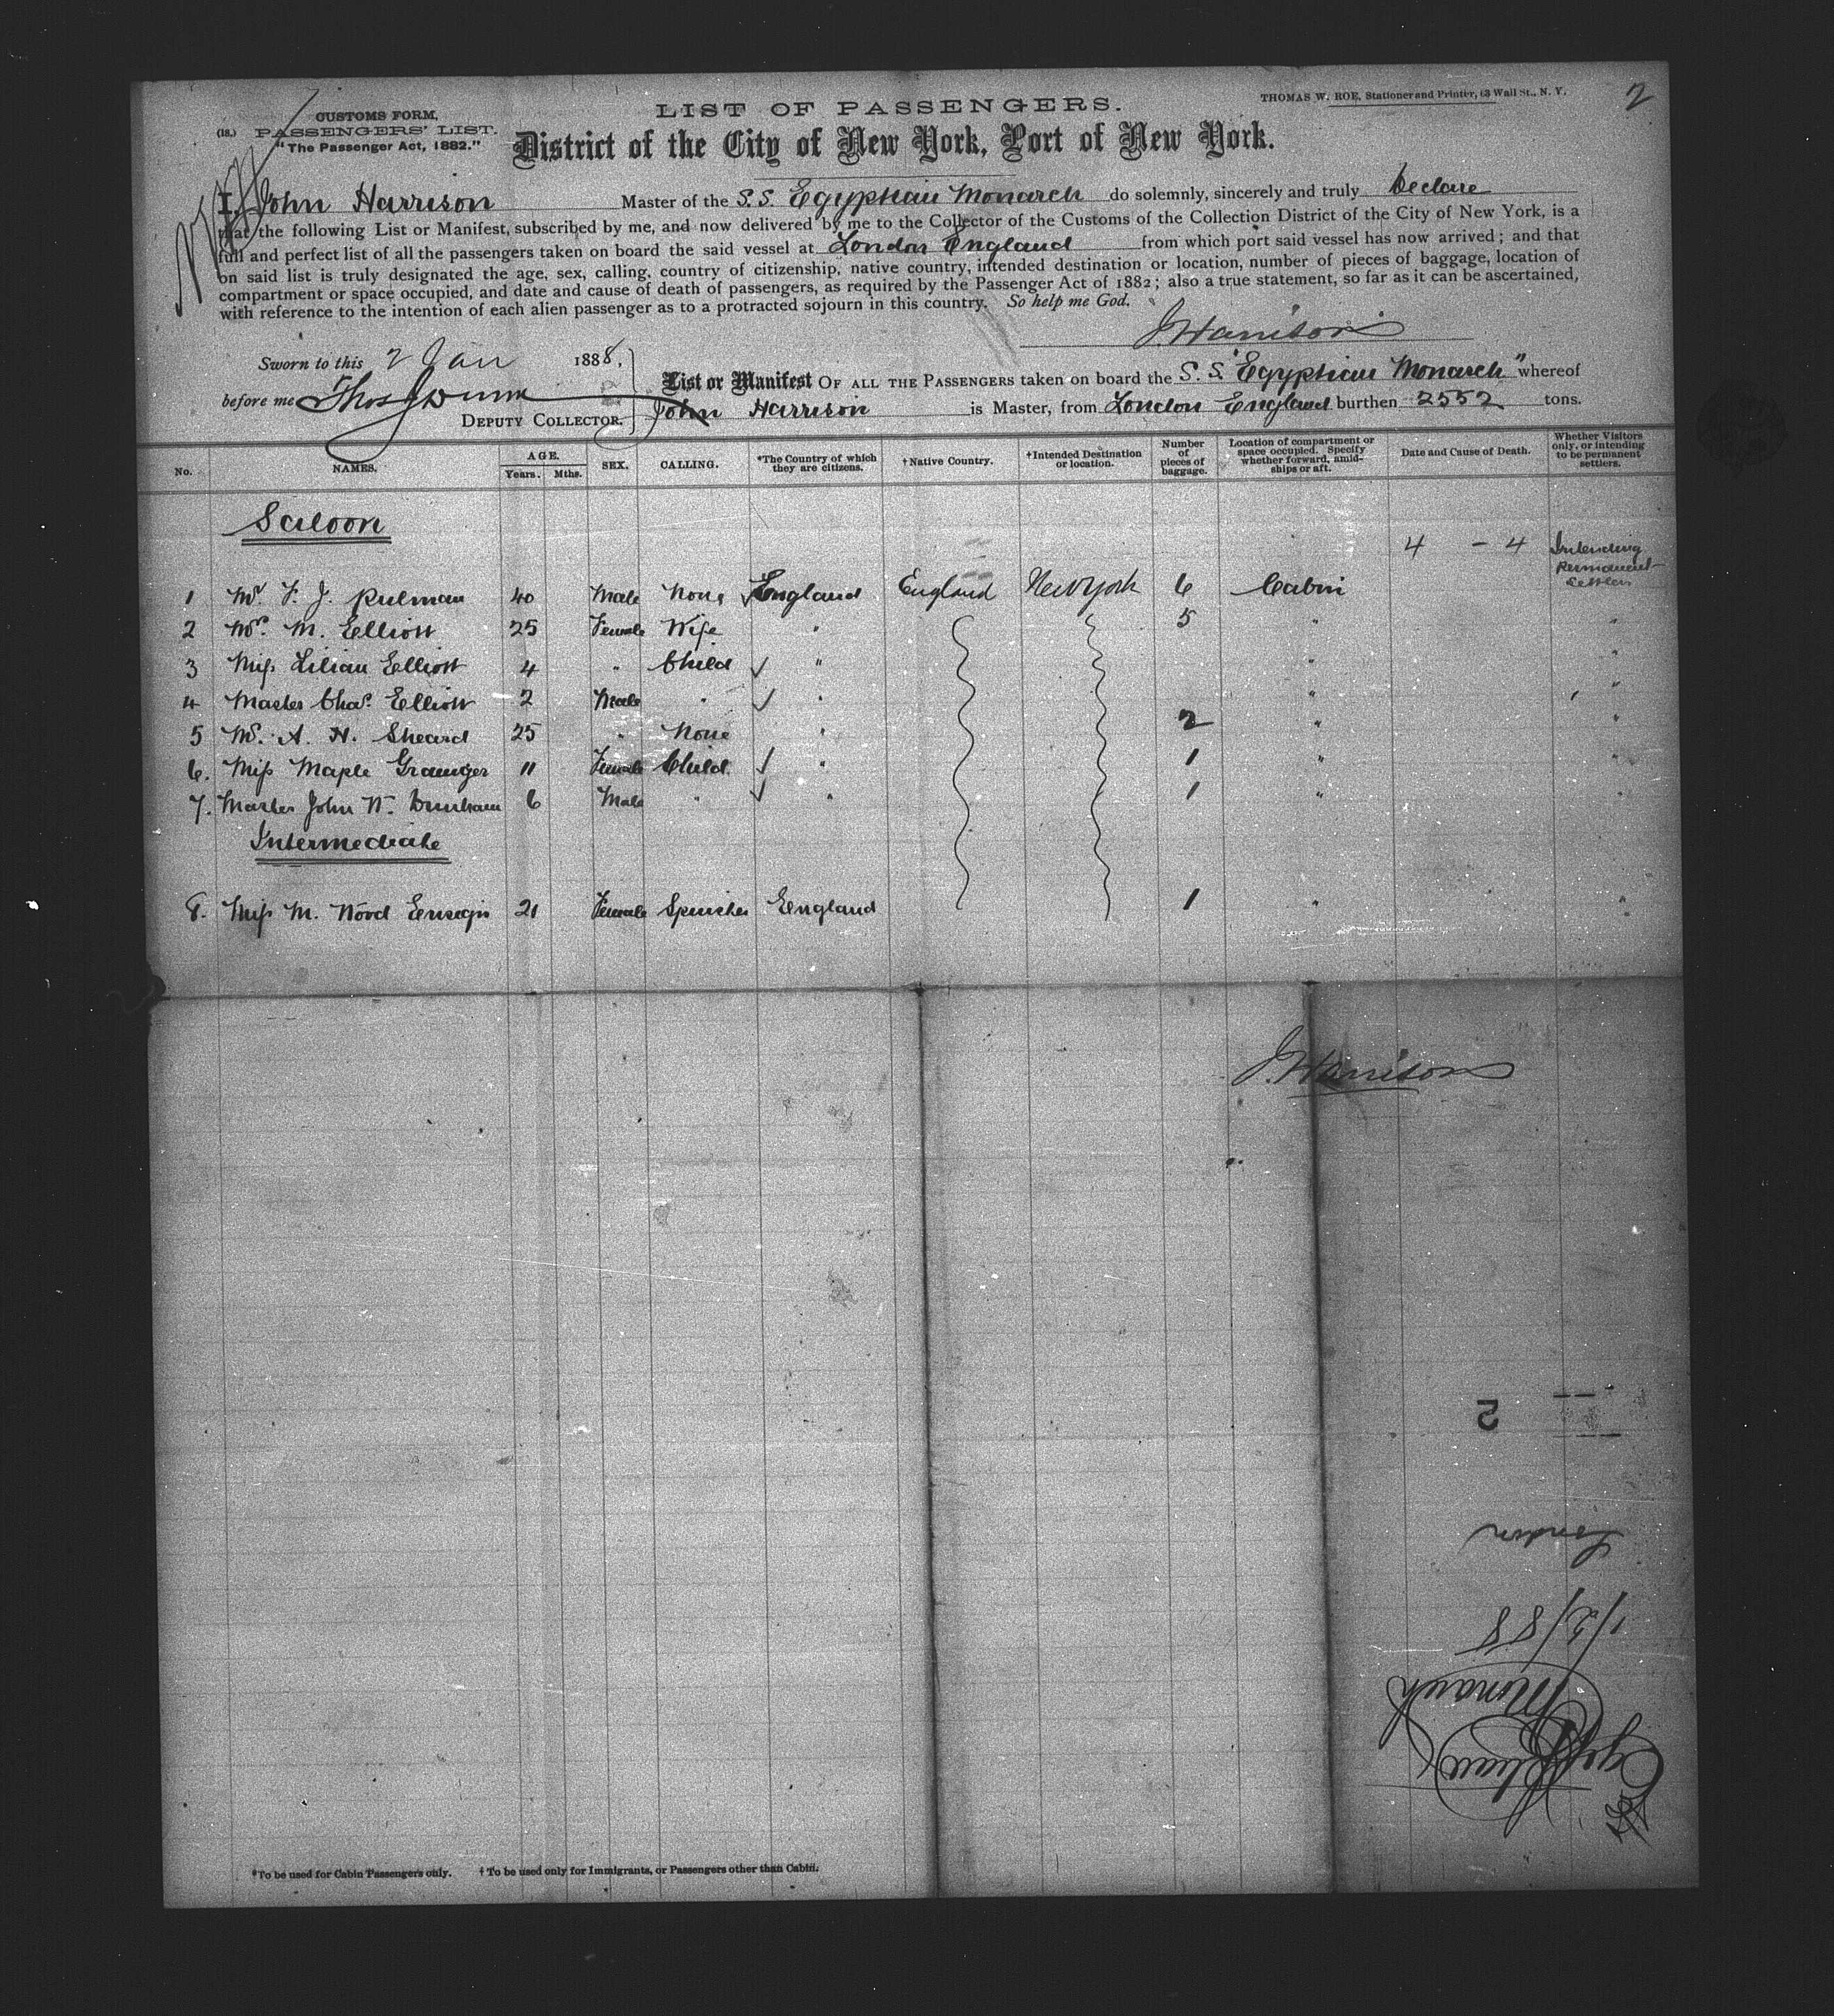 CUSTOMS FORM,
(18.) PASSENGERS' LIST.
"The Passenger Act, 1882."
LIST OF PASSENGERS.
THOMAS W. ROE, Stationer and Printer, 63 Wall St., N. Y.
2
District of the City of New York, Port of New York.
I, John Harrison Master of the S.S. Egyptian Monarch do solemnly, sincerely and truly Declare
that the following List or Manifest, subscribed by me, and now delivered by me to the Collector of the Customs of the Collection District of the City of New York, is a
full and perfect list of all the passengers taken on board the said vessel at London England from which port said vessel has now arrived; and that
on said list is truly designated the age, sex, calling, country of citizenship, native country, intended destination or location, number of pieces of baggage, location of
compartment or space occupied, and date and cause of death of passengers, as required by the Passenger Act of 1882; also a true statement, so far as it can be ascertained,
with reference to the intention of each alien passenger as to a protracted sojourn in this country. So help me God.
J. Harrison
Sworn to this 2 Jan 1888,
before me Thos
DEPUTY COLLECTOR.
List or Manifest OF ALL THE PASSENGERS taken on board the S. S. "Egyptian Monarch" whereof
John Harrison is Master, from London England burthen 2552 tons.
No. NAMES. AGE. Years. Mths. SEX. CALLING. *The Country of which they are citizens. †Native Country. †Intended Destination or location. Number of pieces of baggage. Location of compartment or space occupied. Specify whether forward, amidships or aft. Date and Cause of Death. Whether Visitors only, or intending to be permanent settlers.
Saloon
4 - 4 Intending Permanent Settlers
1 Mr. F. J. Pulman 40 Male None England England New York 6 Cabin
2 Mrs. M. Elliott 25 Female Wife " 5 " "
3 Miss Lilian Elliott 4 " Child " " "
4 Master Chas. Elliott 2 Male " " " "
5 Mr. A. H. Sheard 25 " None " 2 " "
6. Miss Maple Grainger 11 Female Child. " 1 " "
7. Master John W. 6 Male " " 1 " "
Intermediate
8. Miss M. Wood 21 Female Spinster England 1 " "
J. Harrison
2
London
1/2/88
Egyptian
Monarch
*To be used for Cabin Passengers only. † To be used only for Immigrants, or Passengers other than Cabin.